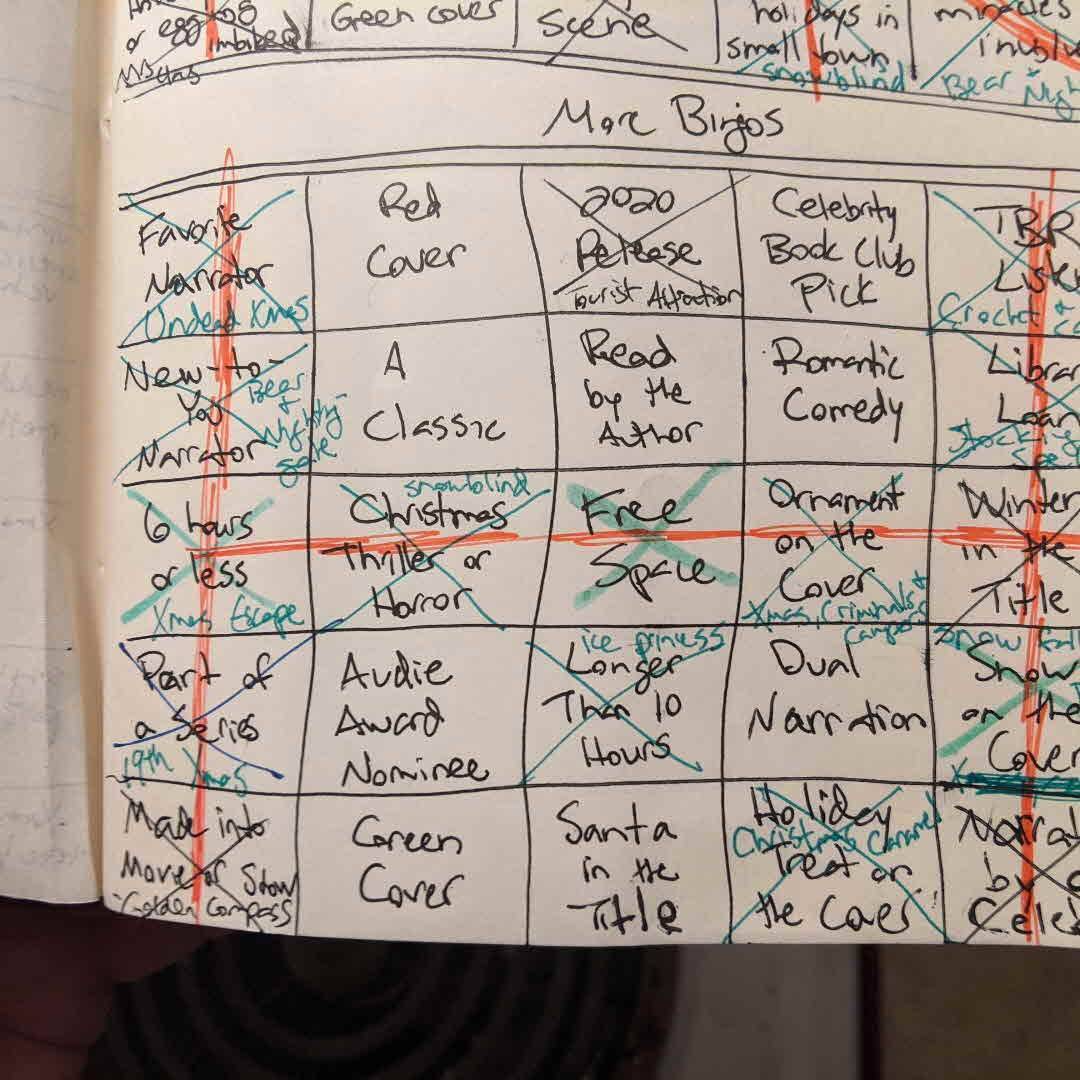 or eggnog
imbibed
Green cover
scene
holidays in
small town
snowblind
miracles
involv
Bear + Nigh
More Bingos
Favorite
Narrator
Undead Xmas
Red
Cover
2020
Release
Tourist Attraction
Celebrity
Book Club
Pick
TBR
Liste
Crochet +
New-to-
You
Narrator
Bear
+
Nightin
gale
A
Classic
Read
by the
Author
Romantic
Comedy
Librar
Loan
6 hours
or less
Xmas Escape
snowblind
Christmas
Thriller or
Horror
Free
Space
Ornament
on the
Cover
Xmas, Criminals +
Campers
Winter
in the
Title
Part of
a Series
19th Xmas
Audie
Award
Nominee
ice princess
Longer
Than 10
Hours
Dual
Narration
Snow fall
Snow
on the
Cover
Made into
Move or Show
Golden Compass
Green
Cover
Santa
in the
Title
Holiday
Christmas Caramel
Treat on
the Cover
Narrat
by a
Celeb